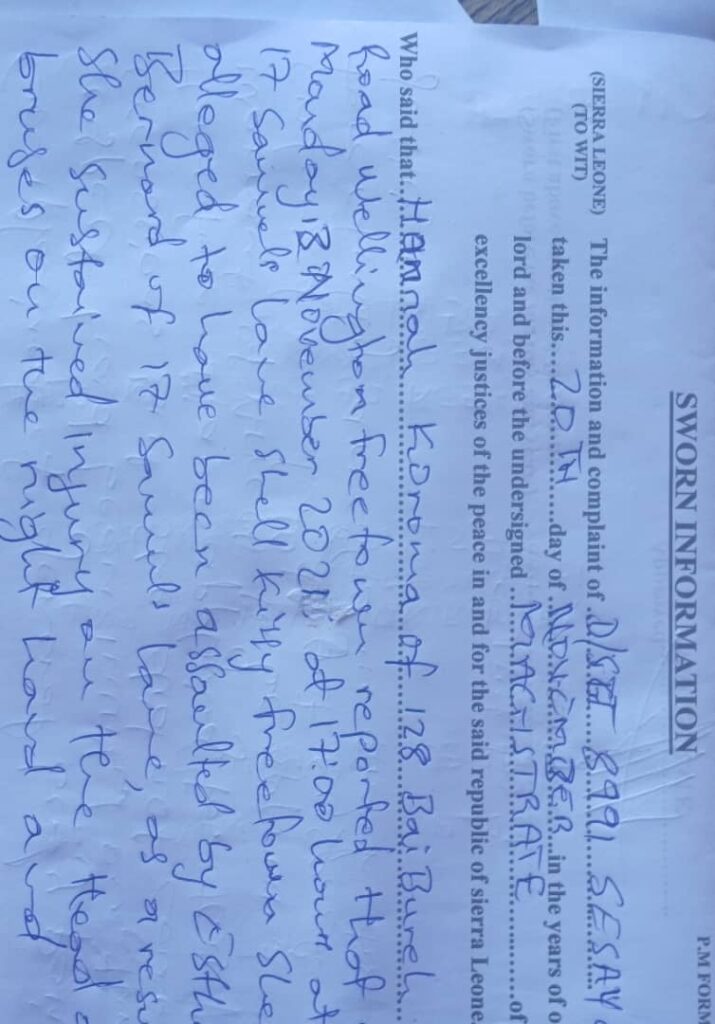 P.M FORM
SWORN INFORMATION
(SIERRA LEONE) The information and complaint of D/SGT 8991 SESAY
(TO WIT) taken this 20TH day of NOVEMBER in the years of
lord and before the undersigned MAGISTRATE of
excellency justices of the peace in and for the said republic of sierra Leone
Who said that Hannah Koroma of 128 Bai Bureh
Road Wellington freetown reported that
Monday 13 November 202 at 17:00 hour at
17 Samuels lane Shell Kissy freetown She
alleged to have been assaulted by
Bernard of 17 Samuels lane, as a
She sustained Injury on the Head
bruises on the right hand and